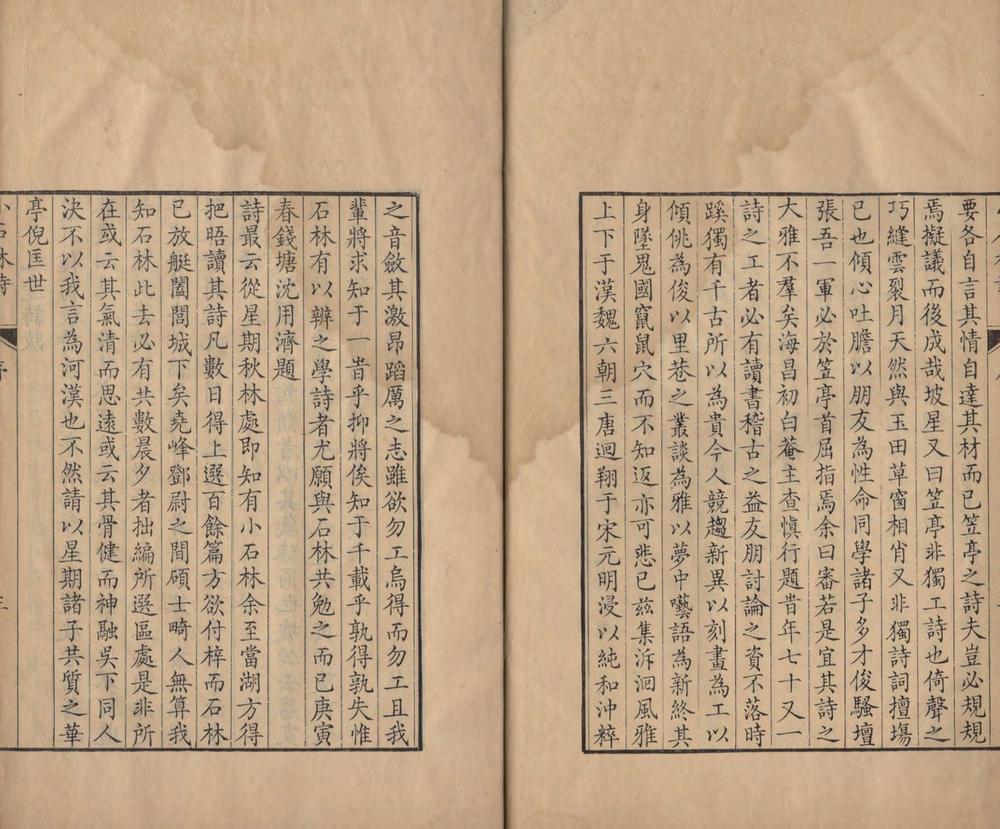 要各自言其情自達其材而已笠亭之詩夫豈必規規
焉擬議而後成哉坡星又曰笠亭非獨工詩也倚聲之
巧縫雲裂月天然與玉田草窗相肖又非獨詩詞擅塲
已也傾心吐膽以朋友為性命同學諸子多才俊騷壇
張吾一軍必於笠亭首屈指焉余曰審若是宜其詩之
大雅不羣矣海昌初白菴主查慎行題昔年七十又一
詩之工者必有讀書稽古之益友朋討論之資不落時
蹊獨有千古所以為貴今人競趨新異以刻畫為工以
傾佻為俊以里巷之叢談為雅以夢中囈語為新終其
身墜鬼國竄鼠穴而不知返亦可悲已茲集泝洄風雅
上下于漢魏六朝三唐迴翔于宋元明浸以純和沖粹
之音斂其激昂蹈厲之志雖欲勿工烏得而勿工且我
輩將求知于一時乎抑將俟知于千載乎孰得孰失惟
石林有以辨之學詩者尤願與石林共勉之而已庚寅
春錢塘沈用濟題
詩最云從星期秋林處即知有小石林余至當湖方得
把晤讀其詩凡數日得上選百餘篇方欲付梓而石林
已放艇闔閭城下矣堯峰鄧尉之間碩士畸人無算我
知石林此去必有共數晨夕者拙編所選區處是非所
在或云其氣清而思遠或云其骨健而神融吳下同人
決不以我言為河漢也不然請以星期諸子共質之華
亭倪匡世
小石林詩
序
三